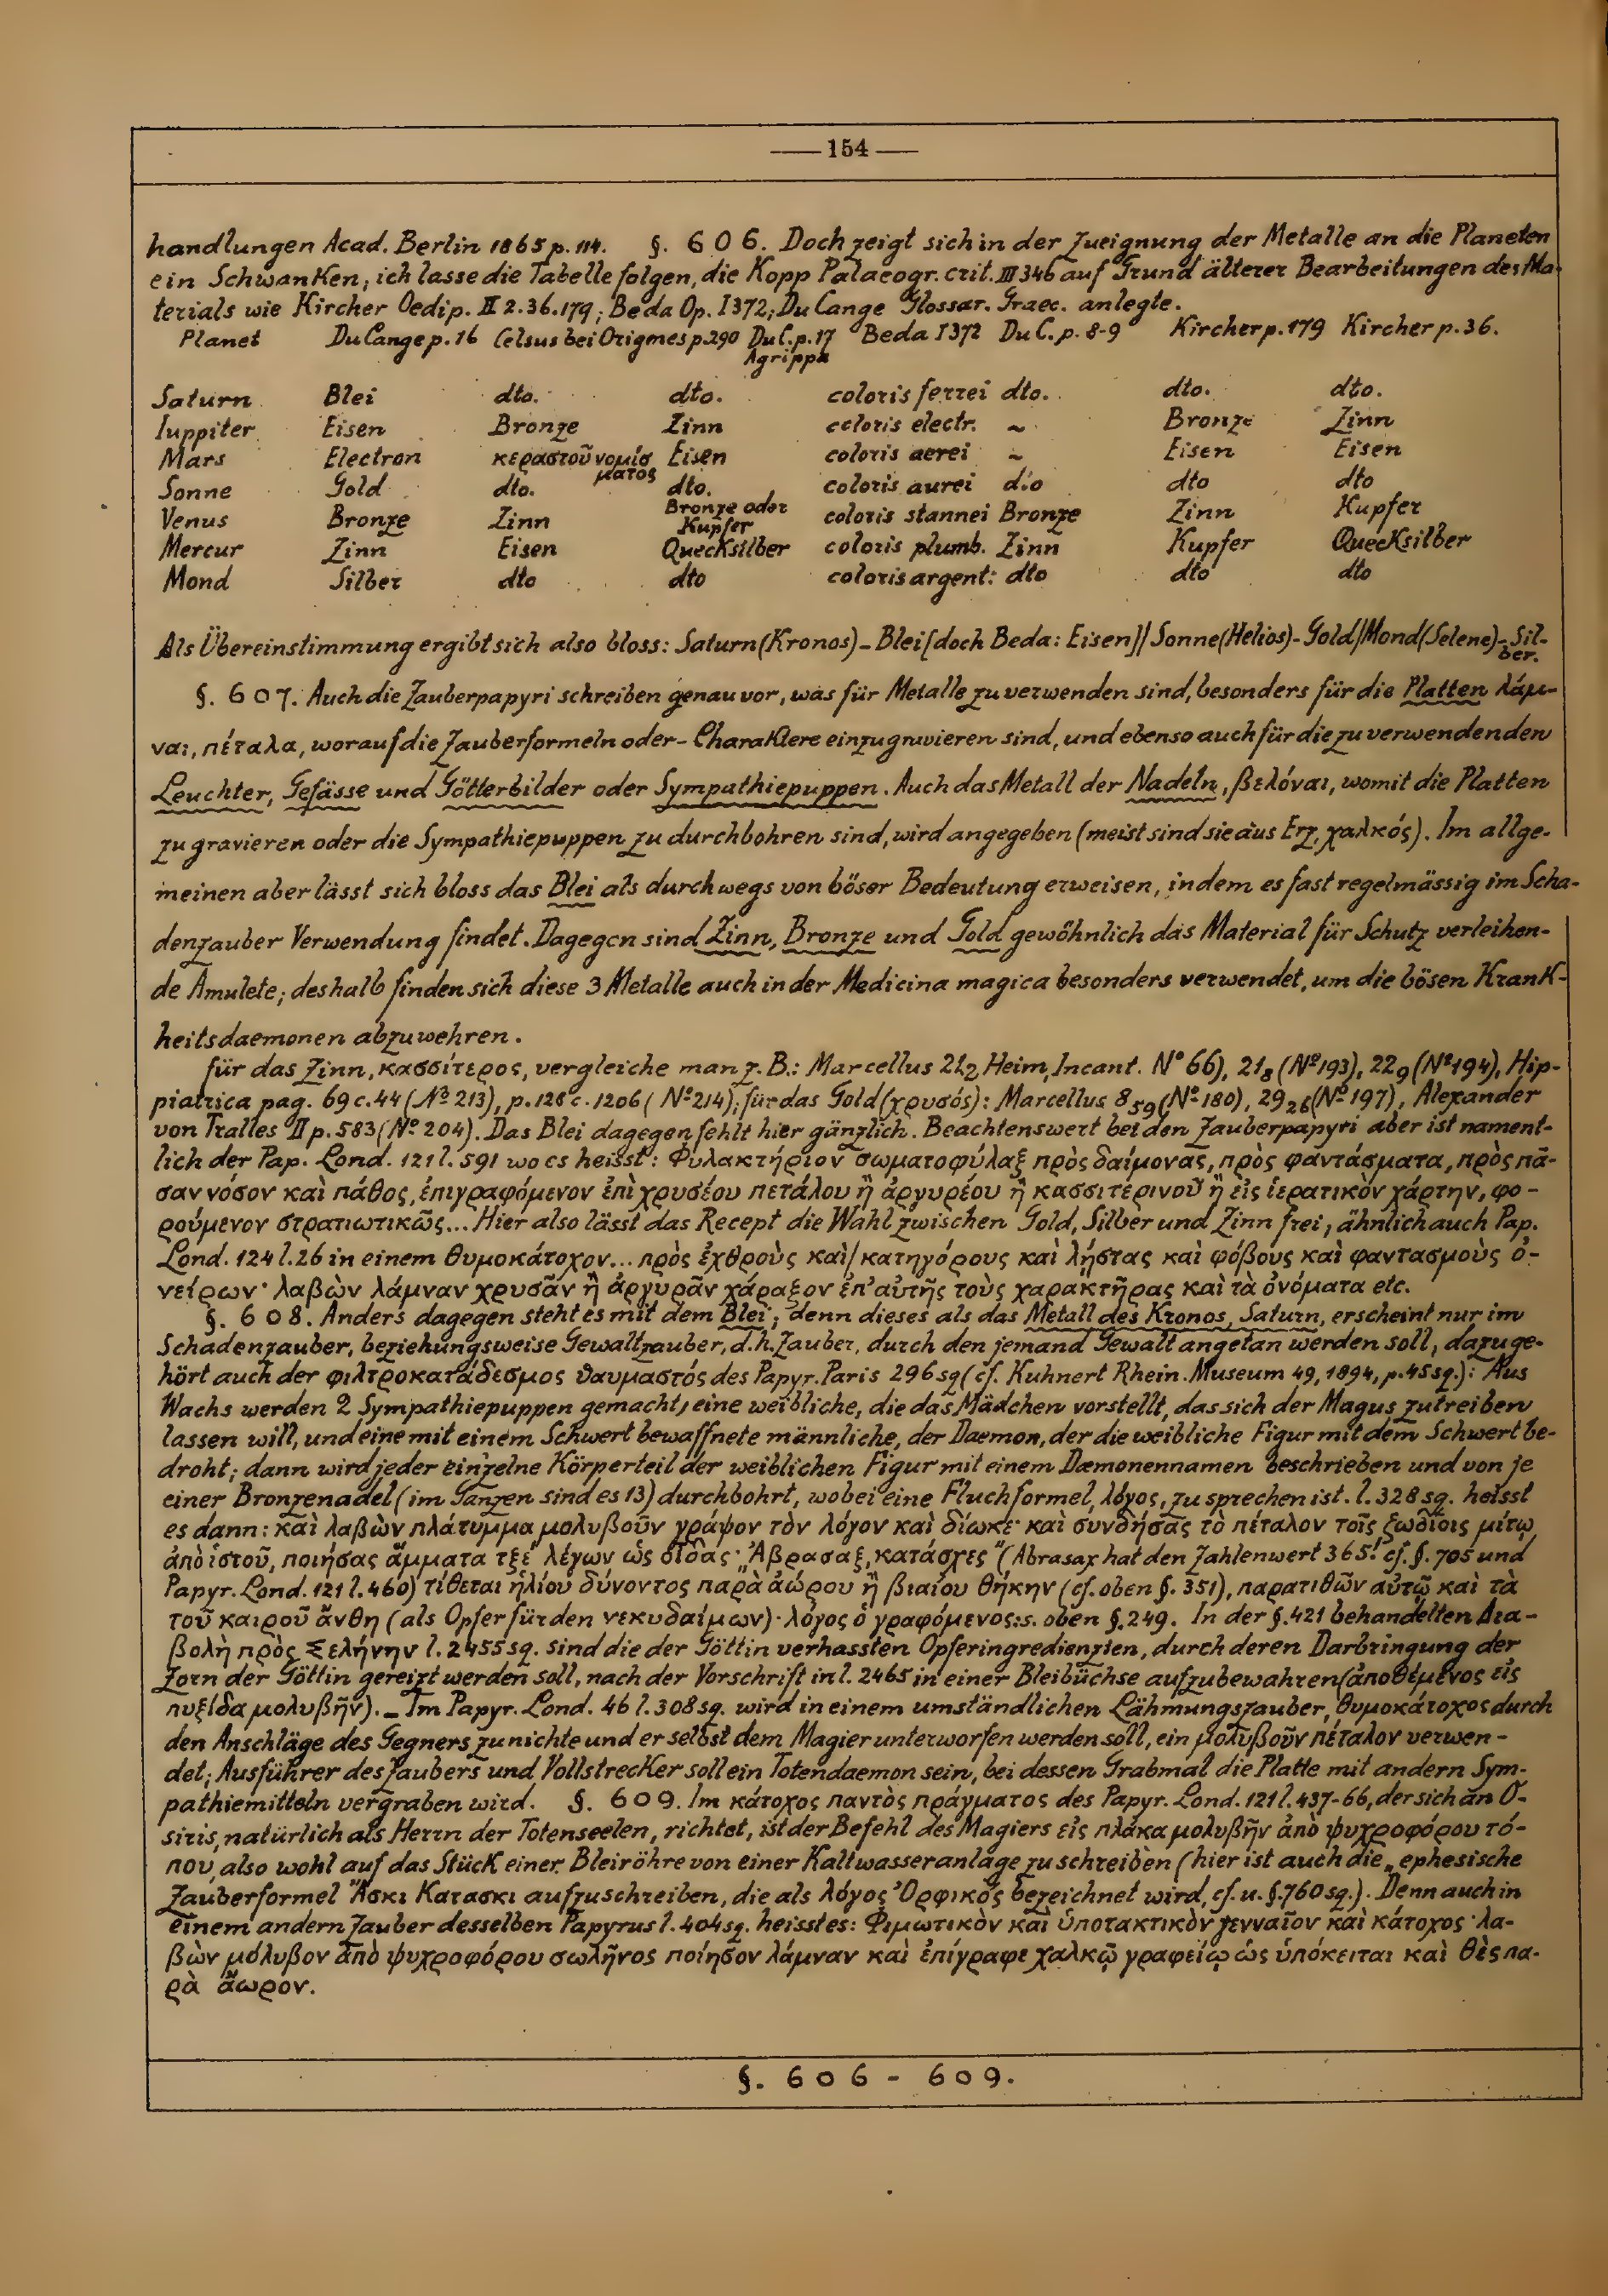 — 154 —
handlungen Acad. Berlin 1865 p. 114. §. 606. Doch zeigt sich in der Zueignung der Metalle an die Planeten
ein Schwanken; ich lasse die Tabelle folgen, die Kopp Palaeogr. crit. III 346 auf Grund älterer Bearbeitungen des Ma-
terials wie Kircher Oedip. II 2. 36. 179; Beda Op. I 372; Du Cange Glossar. Graec. anlegte.
Planet Du Cange p. 16 Celsus bei Origines p. 290 Du C. p. 17 Agrippa Beda I 372 Du C. p. 8-9 Kircher p. 179 Kircher p. 36.
Saturn Blei dto. dto. coloris ferrei dto. dto. dto.
Iuppiter Eisen Bronze Zinn coloris electr. ~ Bronze Zinn
Mars Electron κεραστοῦ νομίσματος Eisen coloris aerei ~ Eisen Eisen
Sonne Gold dto. dto. coloris aurei dto dto dto
Venus Bronze Zinn Bronze oder Kupfer coloris stannei Bronze Zinn Kupfer
Mercur Zinn Eisen Quecksilber coloris plumb. Zinn Kupfer Quecksilber
Mond Silber dto dto coloris argent: dto dto dto
Als Übereinstimmung ergibt sich also bloss: Saturn (Kronos) - Blei [doch Beda: Eisen] | Sonne (Helios) - Gold | Mond (Selene) - Sil-
ber.
§. 607. Auch die Zauberpapyri schreiben genau vor, was für Metalle zu verwenden sind, besonders für die Platten λάμ-
ναι, πέταλα, worauf die Zauberformeln oder - Charaktere einzugravieren sind, und ebenso auch für die zu verwendenden
Leuchter, Gefässe und Götterbilder oder Sympathiepuppen. Auch das Metall der Nadeln, βελόναι, womit die Platten
zu gravieren oder die Sympathiepuppen zu durchbohren sind, wird angegeben (meist sind sie aus Erz, χαλκός). Im allge-
meinen aber lässt sich bloss das Blei als durchwegs von böser Bedeutung erweisen, indem es fast regelmässig im Scha-
denzauber Verwendung findet. Dagegen sind Zinn, Bronze und Gold gewöhnlich das Material für Schutz verleihen-
de Amulete; deshalb finden sich diese 3 Metalle auch in der Medicina magica besonders verwendet, um die bösen Krank-
heitsdaemonen abzuwehren.
für das Zinn, κασσίτερος, vergleiche man z. B.: Marcellus 21₂ Heim, Incant. N° 66), 21₈ (Nº 193), 22₉ (Nº 194), Hip-
piatrica pag. 69 c. 44 (Nº 213), p. 128 c. 1206 (Nº 214); für das Gold (χρυσός): Marcellus 8₅₉ (Nº 180), 29₂₆ (Nº 197), Alexander
von Tralles II p. 583 (Nº 204). Das Blei dagegen fehlt hier gänzlich. Beachtenswert bei den Zauberpapyri aber ist nament-
lich der Pap. Lond. 121 l. 591 wo es heisst: Φυλακτήριον σωματοφύλαξ πρὸς δαίμονας, πρὸς φαντάσματα, πρὸς πᾶ-
σαν νόσον καὶ πάθος, ἐπιγραφόμενον ἐπὶ χρυσέου πετάλου ἢ ἀργυρέου ἢ κασσιτερινοῦ ἢ εἰς ἱερατικὸν χάρτην, φο-
ρούμενον στρατιωτικῶς... Hier also lässt das Recept die Wahl zwischen Gold, Silber und Zinn frei; ähnlich auch Pap.
Lond. 124 l. 26 in einem θυμοκάτοχον... πρὸς ἐχθροὺς καὶ/ κατηγόρους καὶ λῃστας καὶ φόβους καὶ φαντασμοὺς ὀ-
νείρων· λαβὼν λάμναν χρυσᾶν ἢ ἀργυρᾶν χάραξον ἐπ' αὐτῆς τοὺς χαρακτῆρας καὶ τὰ ὀνόματα etc.
§. 608. Anders dagegen steht es mit dem Blei; denn dieses als das Metall des Kronos, Saturn, erscheint nur im
Schadenzauber, beziehungsweise Gewaltzauber, d. h. Zauber, durch den jemand Gewalt angetan werden soll, dazu ge-
hört auch der φιλτροκατάδεσμος θαυμαστός des Papyr. Paris 296 sq (cf. Kuhnert Rhein. Museum 49, 1894, p. 45 sq.): Aus
Wachs werden 2 Sympathiepuppen gemacht, eine weibliche, die das Mädchen vorstellt, das sich der Magus zutreiben
lassen will, und eine mit einem Schwert bewaffnete männliche, der Daemon, der die weibliche Figur mit dem Schwert be-
droht; dann wird jeder einzelne Körperteil der weiblichen Figur mit einem Dæmonennamen beschrieben und von je
einer Bronzenadel (im Ganzen sind es 13) durchbohrt, wobei eine Fluchformel, λόγος, zu sprechen ist. l. 328 sq. heisst
es dann: καὶ λαβὼν πλάτυμμα μολυβοῦν γράψον τὸν λόγον καὶ δίωκε· καὶ συνδήσας τὸ πέταλον τοῖς ζωδίοις μίτῳ
ἀπὸ ἱστοῦ, ποιήσας ἅμματα τξέ λέγων ὡς οἶδας· „Ἀβρασαξ, κατάσχες" (Abrasax hat den Zahlenwert 365! cf. §. 705 und
Papyr. Lond. 121 l. 460) τίθεται ἡλίου δύνοντος παρὰ ἀώρου ἢ βιαίου θήκην (cf. oben §. 351), παρατιθῶν αὐτῷ καὶ τὰ
τοῦ καιροῦ ἄνθη (als Opfer für den νεκυδαίμων)· λόγος ὁ γραφόμενος: s. oben §. 249. In der §. 421 behandelten Δια-
βολὴ πρὸς Σελήνην l. 2455 sq. sind die der Göttin verhassten Opferingredienzien, durch deren Darbringung der
Zorn der Göttin gereizt werden soll, nach der Vorschrift in l. 2465 in einer Bleibüchse aufzubewahren (ἀποθέμενος εἰς
πυξίδα μολυβῆν). _ Im Papyr. Lond. 46 l. 308 sq. wird in einem umständlichen Lähmungszauber, θυμοκάτοχος durch
den Anschläge des Gegners zu nichte und er selbst dem Magier unterworfen werden soll, ein μολυβοῦν πέταλον verwen-
det; Ausführer des Zaubers und Vollstrecker soll ein Totendaemon sein, bei dessen Grabmal die Platte mit andern Sym-
pathiemitteln vergraben wird. §. 609. Im κάτοχος παντὸς πράγματος des Papyr. Lond. 121 l. 437-66, der sich an O-
siris, natürlich als Herrn der Totenseelen, richtet, ist der Befehl des Magiers εἰς πλάκα μολυβῆν ἀπὸ ψυχροφόρου τό-
που, also wohl auf das Stück einer Bleiröhre von einer Kaltwasseranlage zu schreiben (hier ist auch die „ephesische
Zauberformel" Ἄσκι Κατασκι aufzuschreiben, die als λόγος Ὀρφικός bezeichnet wird, cf. u. §. 760 sq.). Denn auch in
einem andern Zauber desselben Papyrus l. 404 sq. heisst es: Φιμωτικὸν καὶ ὑποτακτικὸν γενναῖον καὶ κάτοχος· λα-
βὼν μόλυβον ἀπὸ ψυχροφόρου σωλῆνος ποίησον λάμναν καὶ ἐπίγραφε χαλκῷ γραφείῳ ὡς ὑπόκειται καὶ θὲς πα-
ρὰ ἄωρον.
§. 606 - 609.